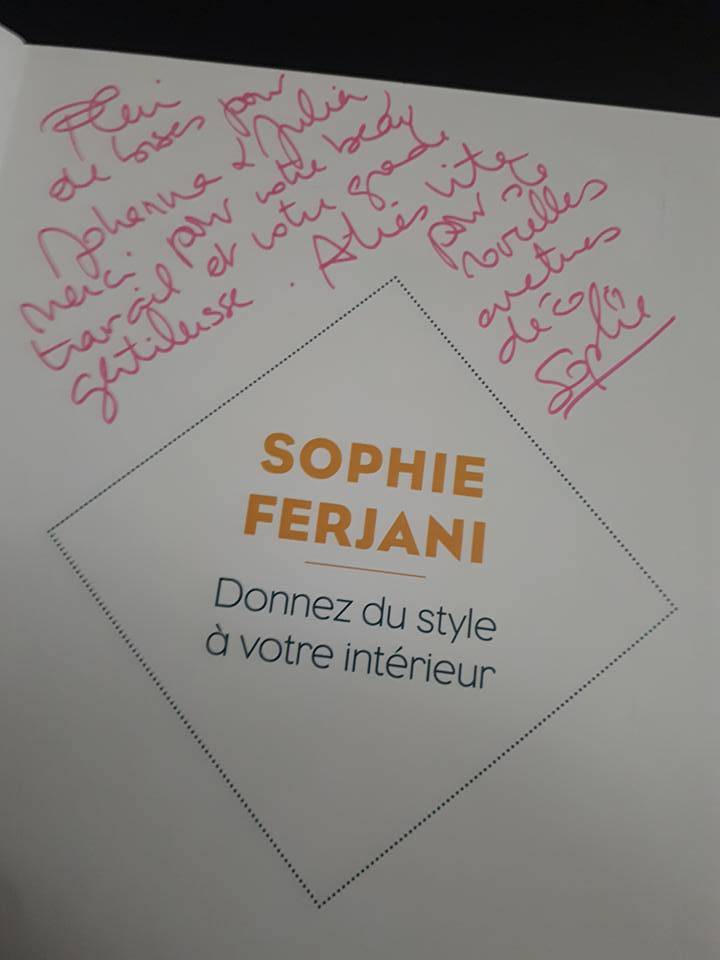 Plein
de bises pour
Johanna & Julia,
merci pour votre beau
travail et votre grande
gentilesse. A très vite
pour de
nouvelles
aventures
déco
Sophie
SOPHIE
FERJANI
Donnez du style
à votre intérieur